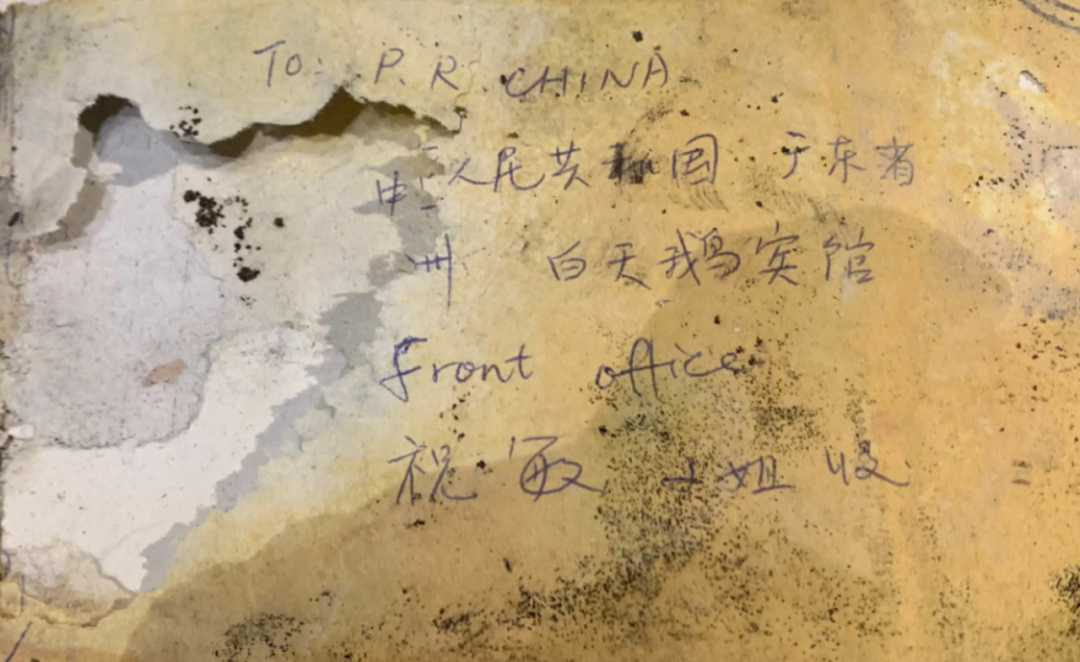 To: P. R. CHINA
中人民共和国 广东省
州 白天鹅宾馆
Front office
祝敏 小姐 收